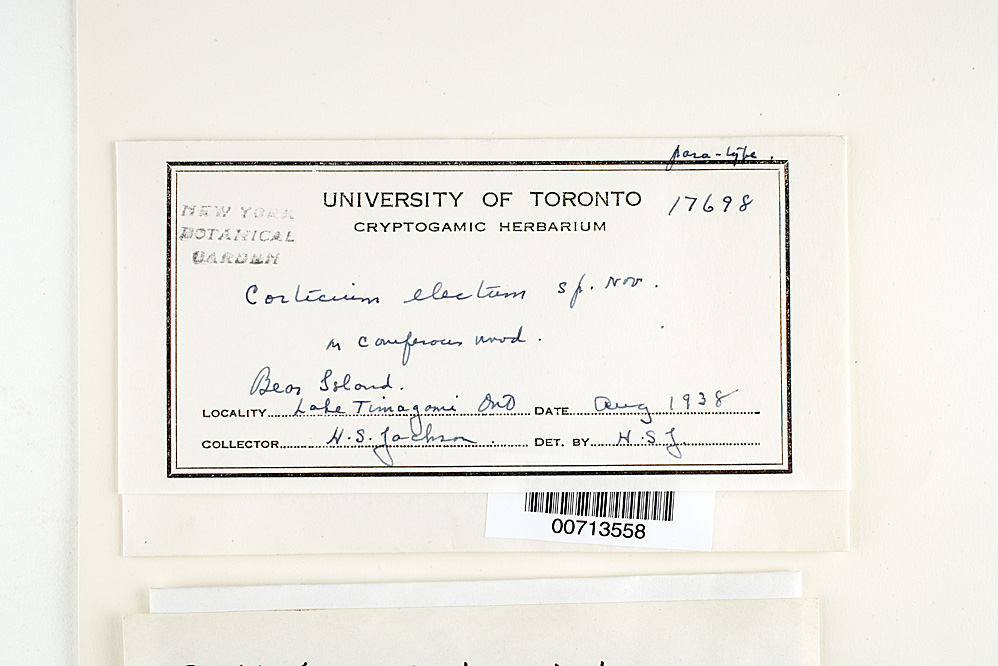 para-type.
UNIVERSITY OF TORONTO 17698
CRYPTOGAMIC HERBARIUM
NEW YORK
BOTANICAL
GARDEN
Corticium electum sp. nov.
on coniferous wood.
Bear Island.
LOCALITY Lake Timagami Ont DATE Aug 1938
COLLECTOR H.S. Jackson. DET. BY H.S.J.
00713558